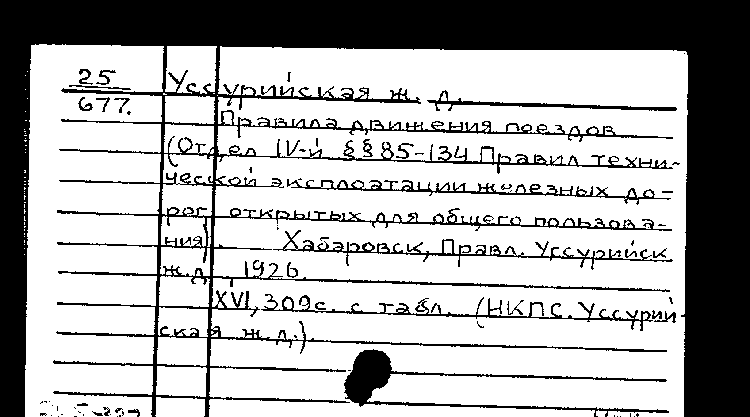 25
677.
Уссурийская ж. д.
Правила движения поездов
(Отдел IV-й §§ 85-134 Правил техни-
ческой эксплоатации железных до-
рог, открытых для общего пользова-
ния). Хабаровск, Правл. Уссурийск.
ж.д., 1926.
XVI, 309 с. с табл. (НКПС. Уссурий-
ская ж.д.).